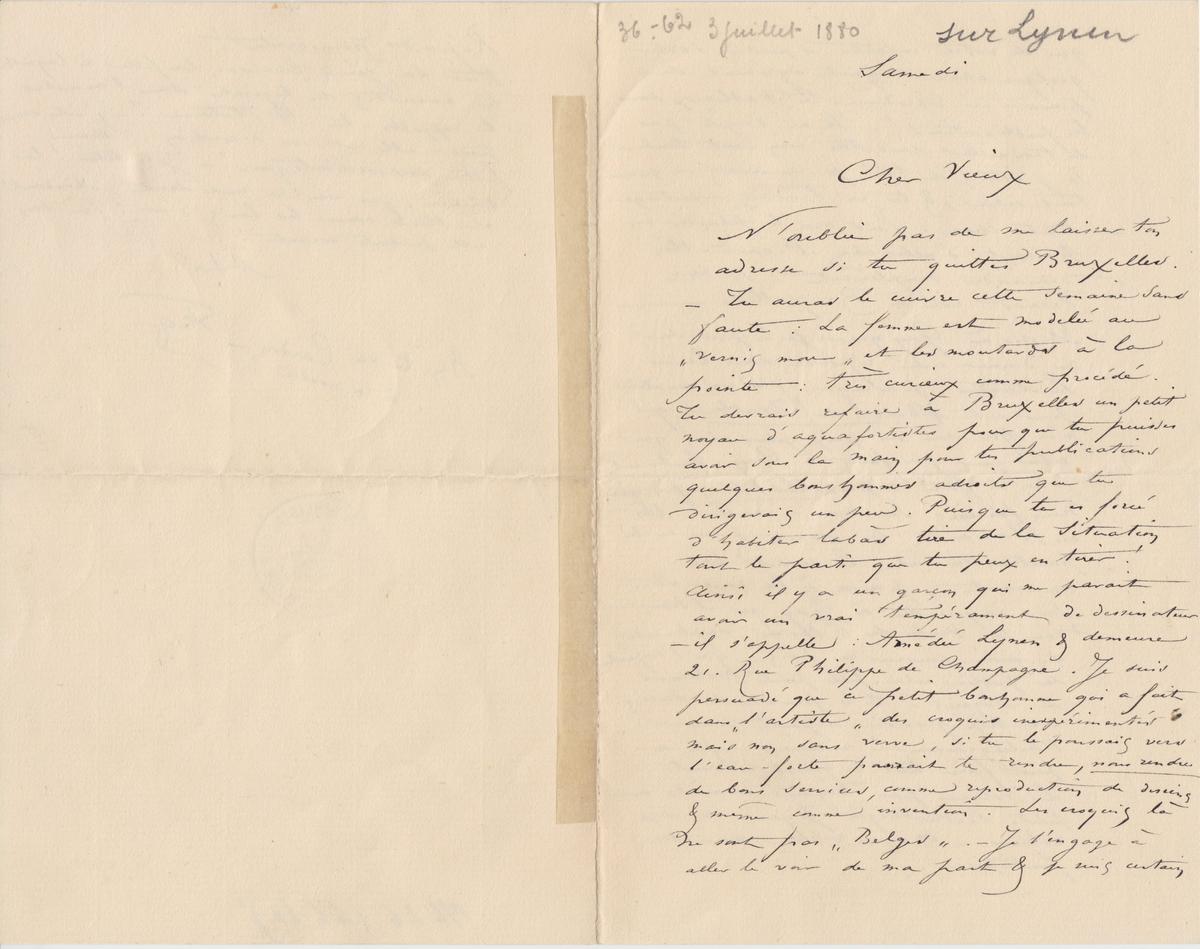 36-62 3 juillet 1880 sur Lynen
Samedi
Cher Vieux
N'oublie pas de me laisser ton
adresse si tu quittes Bruxelles.
— Tu auras le cuivre cette semaine sans
faute : La femme est modelée au
„vernis mou„ et les moutards à la
pointe : très curieux comme procédé.
Tu devrais refaire à Bruxelles un petit
noyau d'aquafortistes pour que tu puisses
avoir sous la main pour tes publications
quelques bonshommes adroits que tu
dirigerais un peu. Puisque tu es forcé
d'habiter labàs tire de la situation
tout le parti que tu peux en tirer!
Ainsi il y a un garçon qui me parait
avoir un vrai tempérament de dessinateur
— il s'appelle : Amédée Lynen & demeure
21. Rue Philippe de Champagne. Je suis
persuadé que ce petit bonhomme qui a fait
dans „l'artiste„ des croquis inexpérimentés
mais non sans verve, si tu le poussais vers
l'eau-forte pourrait te rendre, nous rendre
de bons services, comme reproduction de dessins
& même comme invention. Les croquis là
ne sont pas „Belges„. — Je t'engage à
aller le voir de ma part & je suis certain